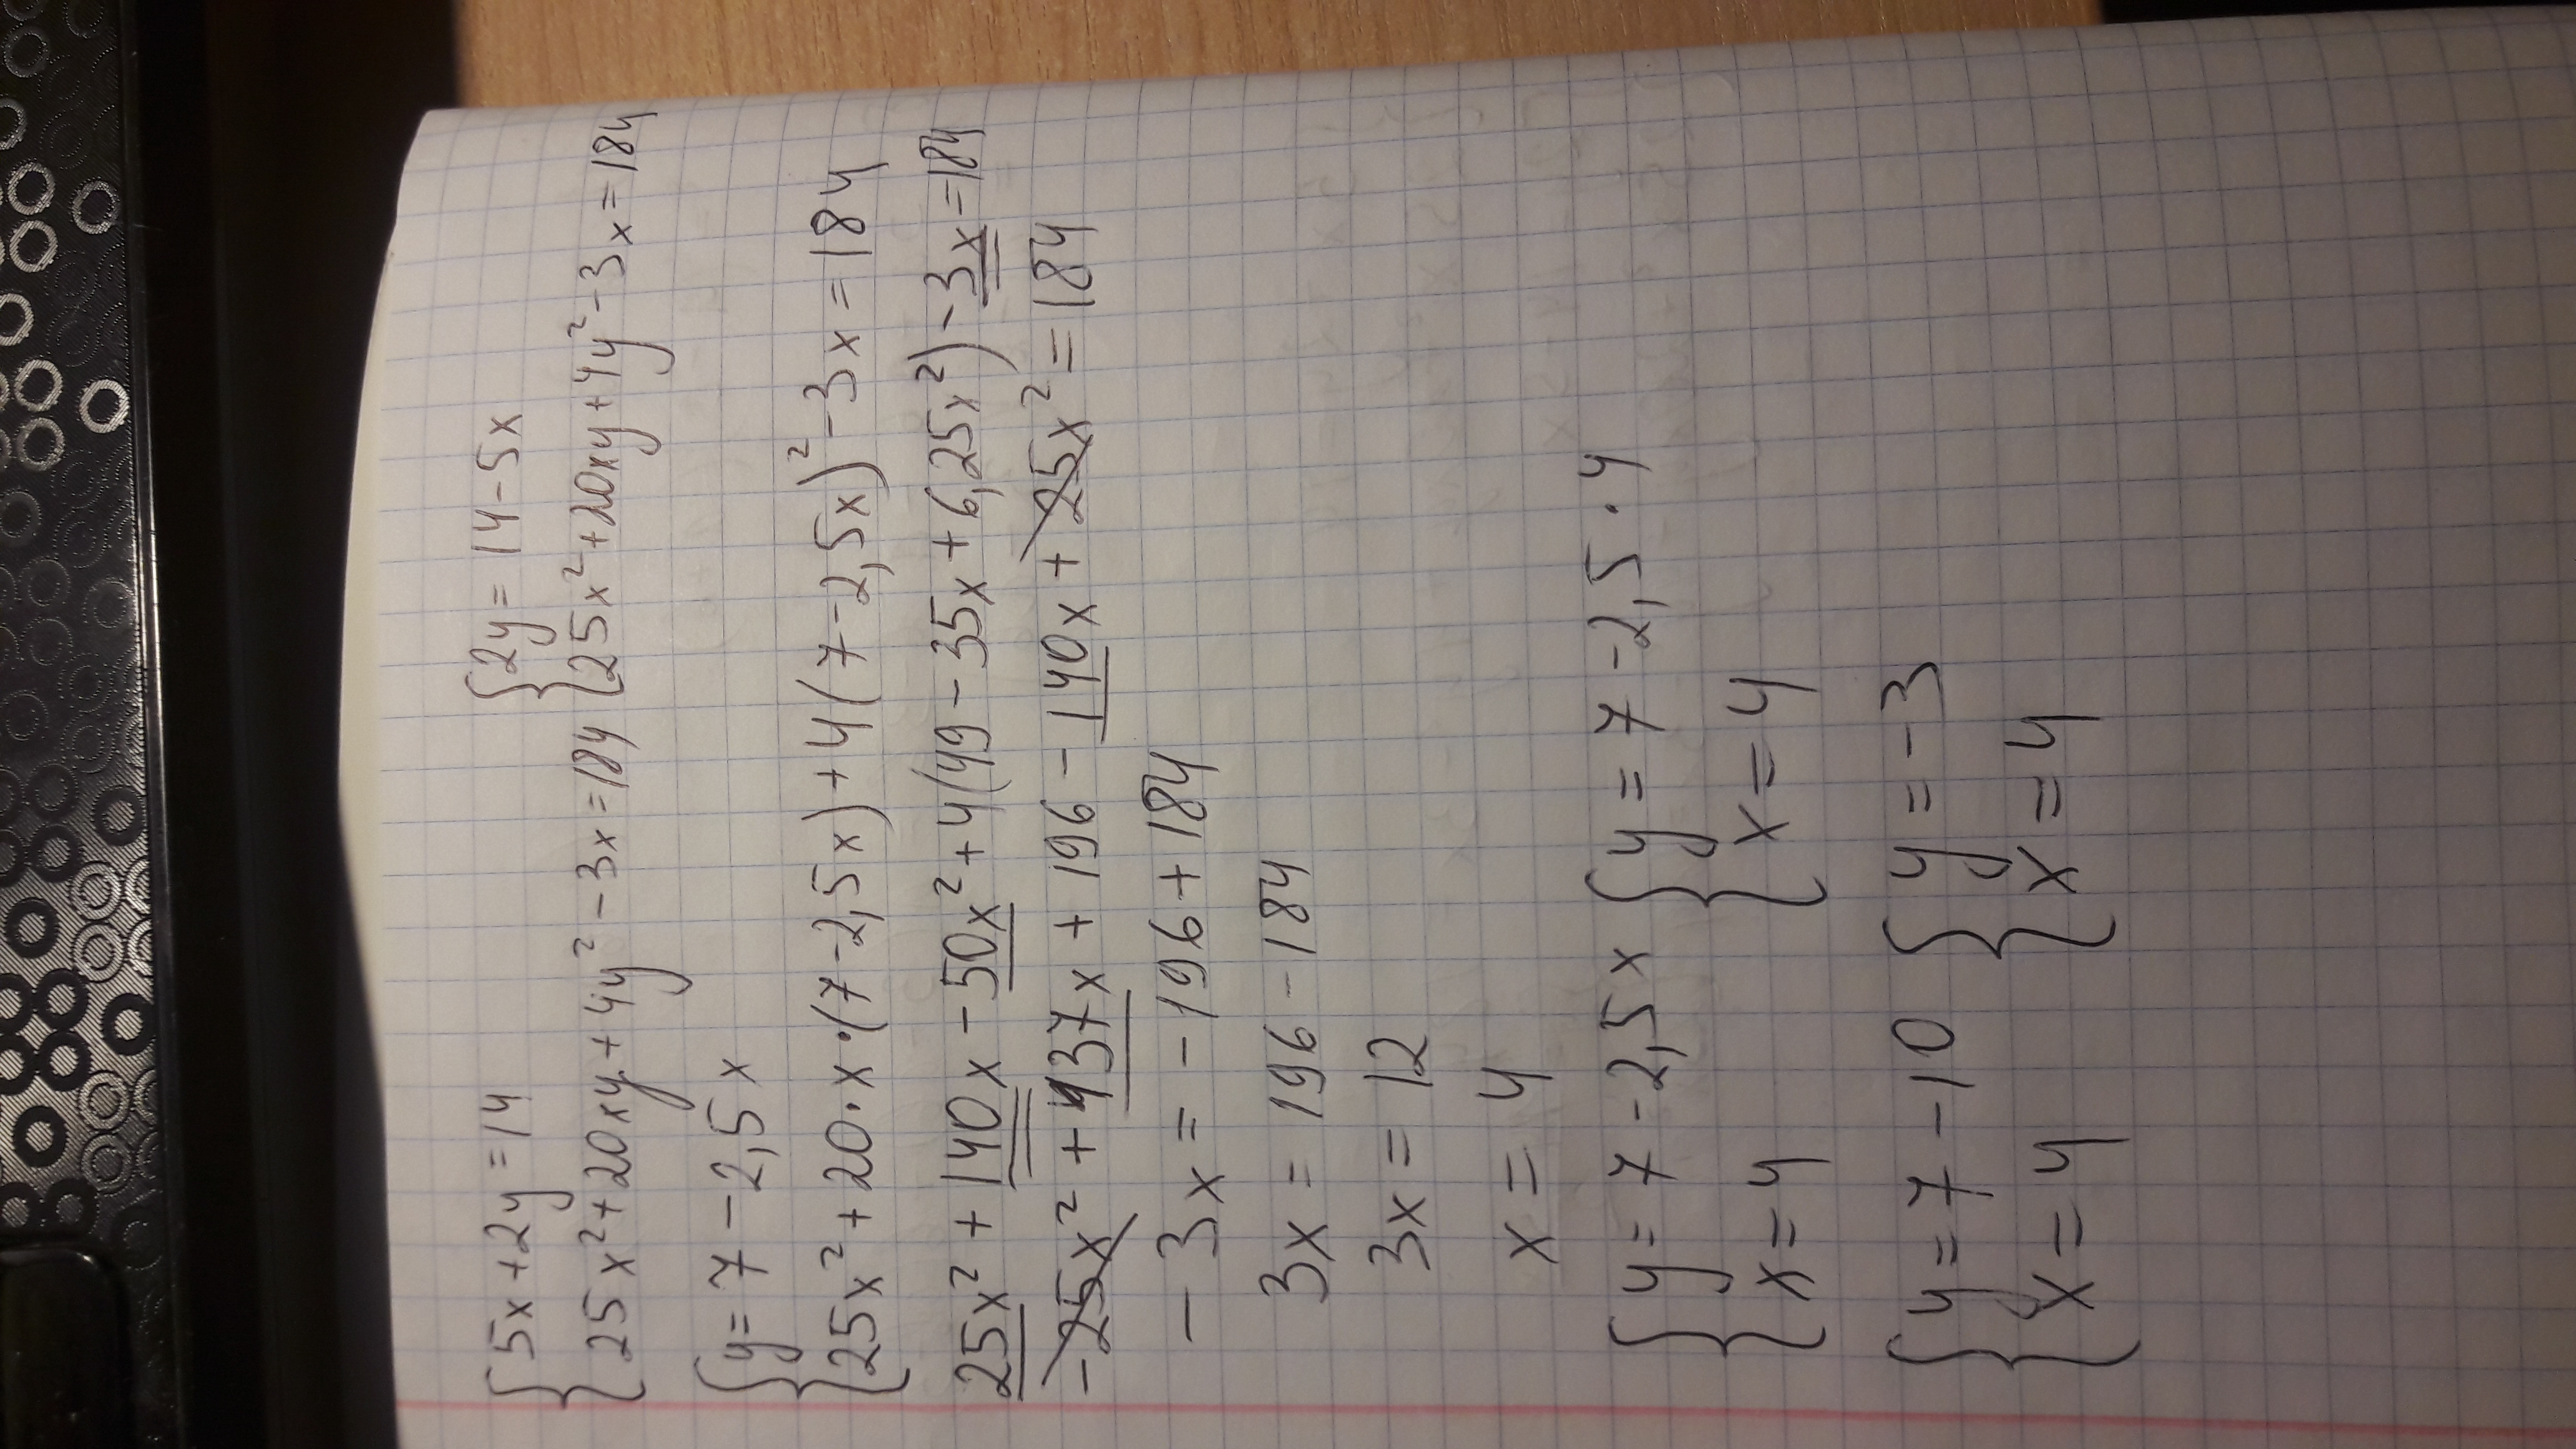 { 5x + 2y = 14 { 2y = 14 - 5x
{ 25x² + 20xy + 4y² - 3x = 184 { 25x² + 20xy + 4y² - 3x = 184
{ y = 7 - 2,5x
{ 25x² + 20·x·(7 - 2,5x) + 4(7 - 2,5x)² - 3x = 184
25x² + 140x - 50x² + 4(49 - 35x + 6,25x²) - 3x = 184
-25x² + 137x + 196 - 140x + 25x² = 184
-3x = -196 + 184
3x = 196 - 184
3x = 12
x = 4
{ y = 7 - 2,5x { y = 7 - 2,5 · 4
{ x = 4 { x = 4
{ y = 7 - 10 { y = -3
{ x = 4 { x = 4